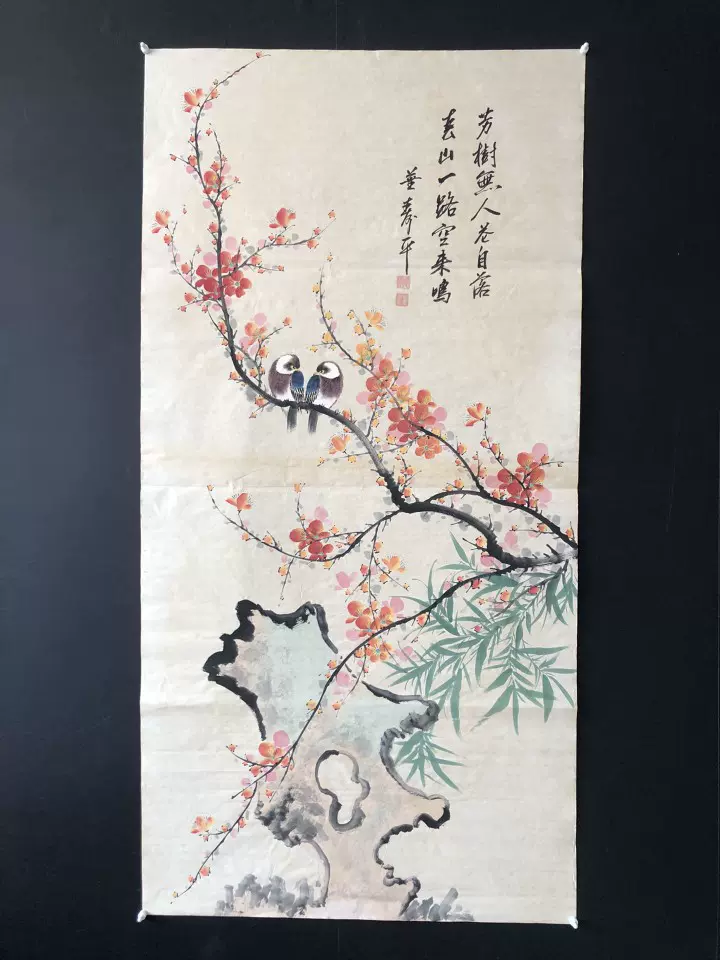 芳樹無人花自落
春山一路空来鳴
董寿平